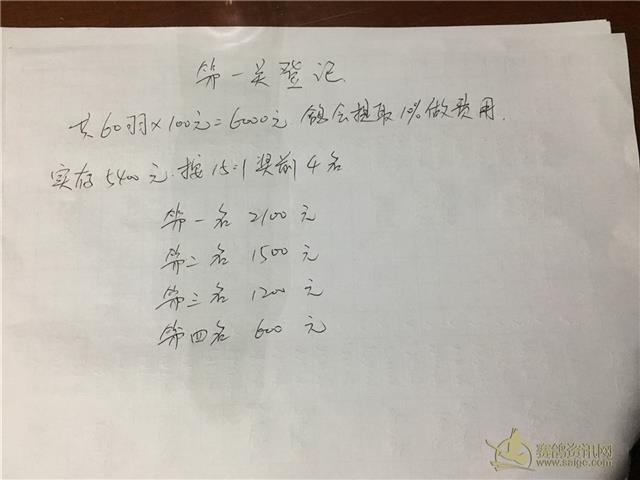 第一关登记
共60羽×100元=6000元 鸽会提取10%做费用.
实存5400元.按15:1奖前4名
第一名 2100元
第二名 1500元
第三名 1200元
第四名 600元
赛鸽资讯网
www.saige.com